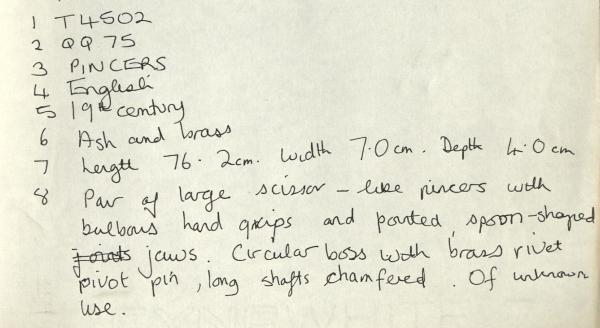 1 T4502
2 QQ 75
3 PINCERS
4 English
5 19th century
6 Ash and brass
7 Length 76.2cm. Width 7.0cm. Depth 4.0cm
8 Pair of large scissor-like pincers with
bulbous hand grips and pointed, spoon-shaped
joints jaws. Circular boss with brass rivet
pivot pin, long shafts chamfered. Of unknown
use.